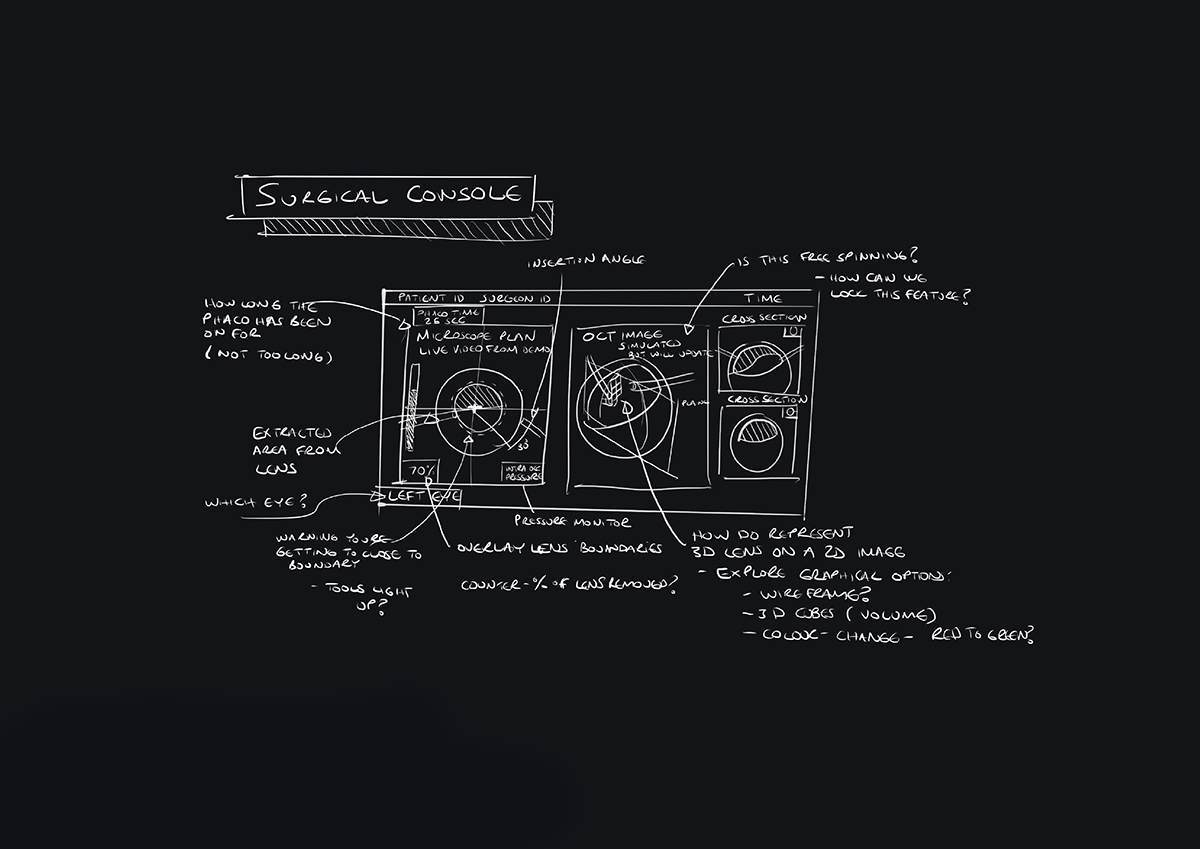 SURGICAL CONSOLE
INSERTION ANGLE
IS THIS FREE SPINNING?
- HOW CAN WE
LOCK THIS FEATURE?
HOW LONG THE
PHACO HAS BEEN
ON FOR
(NOT TOO LONG)
PATIENT ID SURGEON ID
TIME
PHACO TIME
26 SEC
MICROSCOPE PLAN
LIVE VIDEO FROM DEMO
OCT IMAGE
SIMULATED
BUT WILL UPDATE
CROSS SECTION
CROSS SECTION
EXTRACTED
AREA FROM
LENS
70%
INTRA OCC
PRESSURE
WHICH EYE?
LEFT EYE
PRESSURE MONITOR
WARNING YOU'RE
GETTING TO CLOSE TO
BOUNDARY
- TOOLS LIGHT
UP?
OVERLAY LENS BOUNDARIES
COUNTER - % OF LENS REMOVED?
HOW DO REPRESENT
3D LENS ON A 2D IMAGE
- EXPLORE GRAPHICAL OPTIONS:
- WIREFRAME?
- 3D CUBES (VOLUME)
- COLOUR - CHANGE - RED TO GREEN?